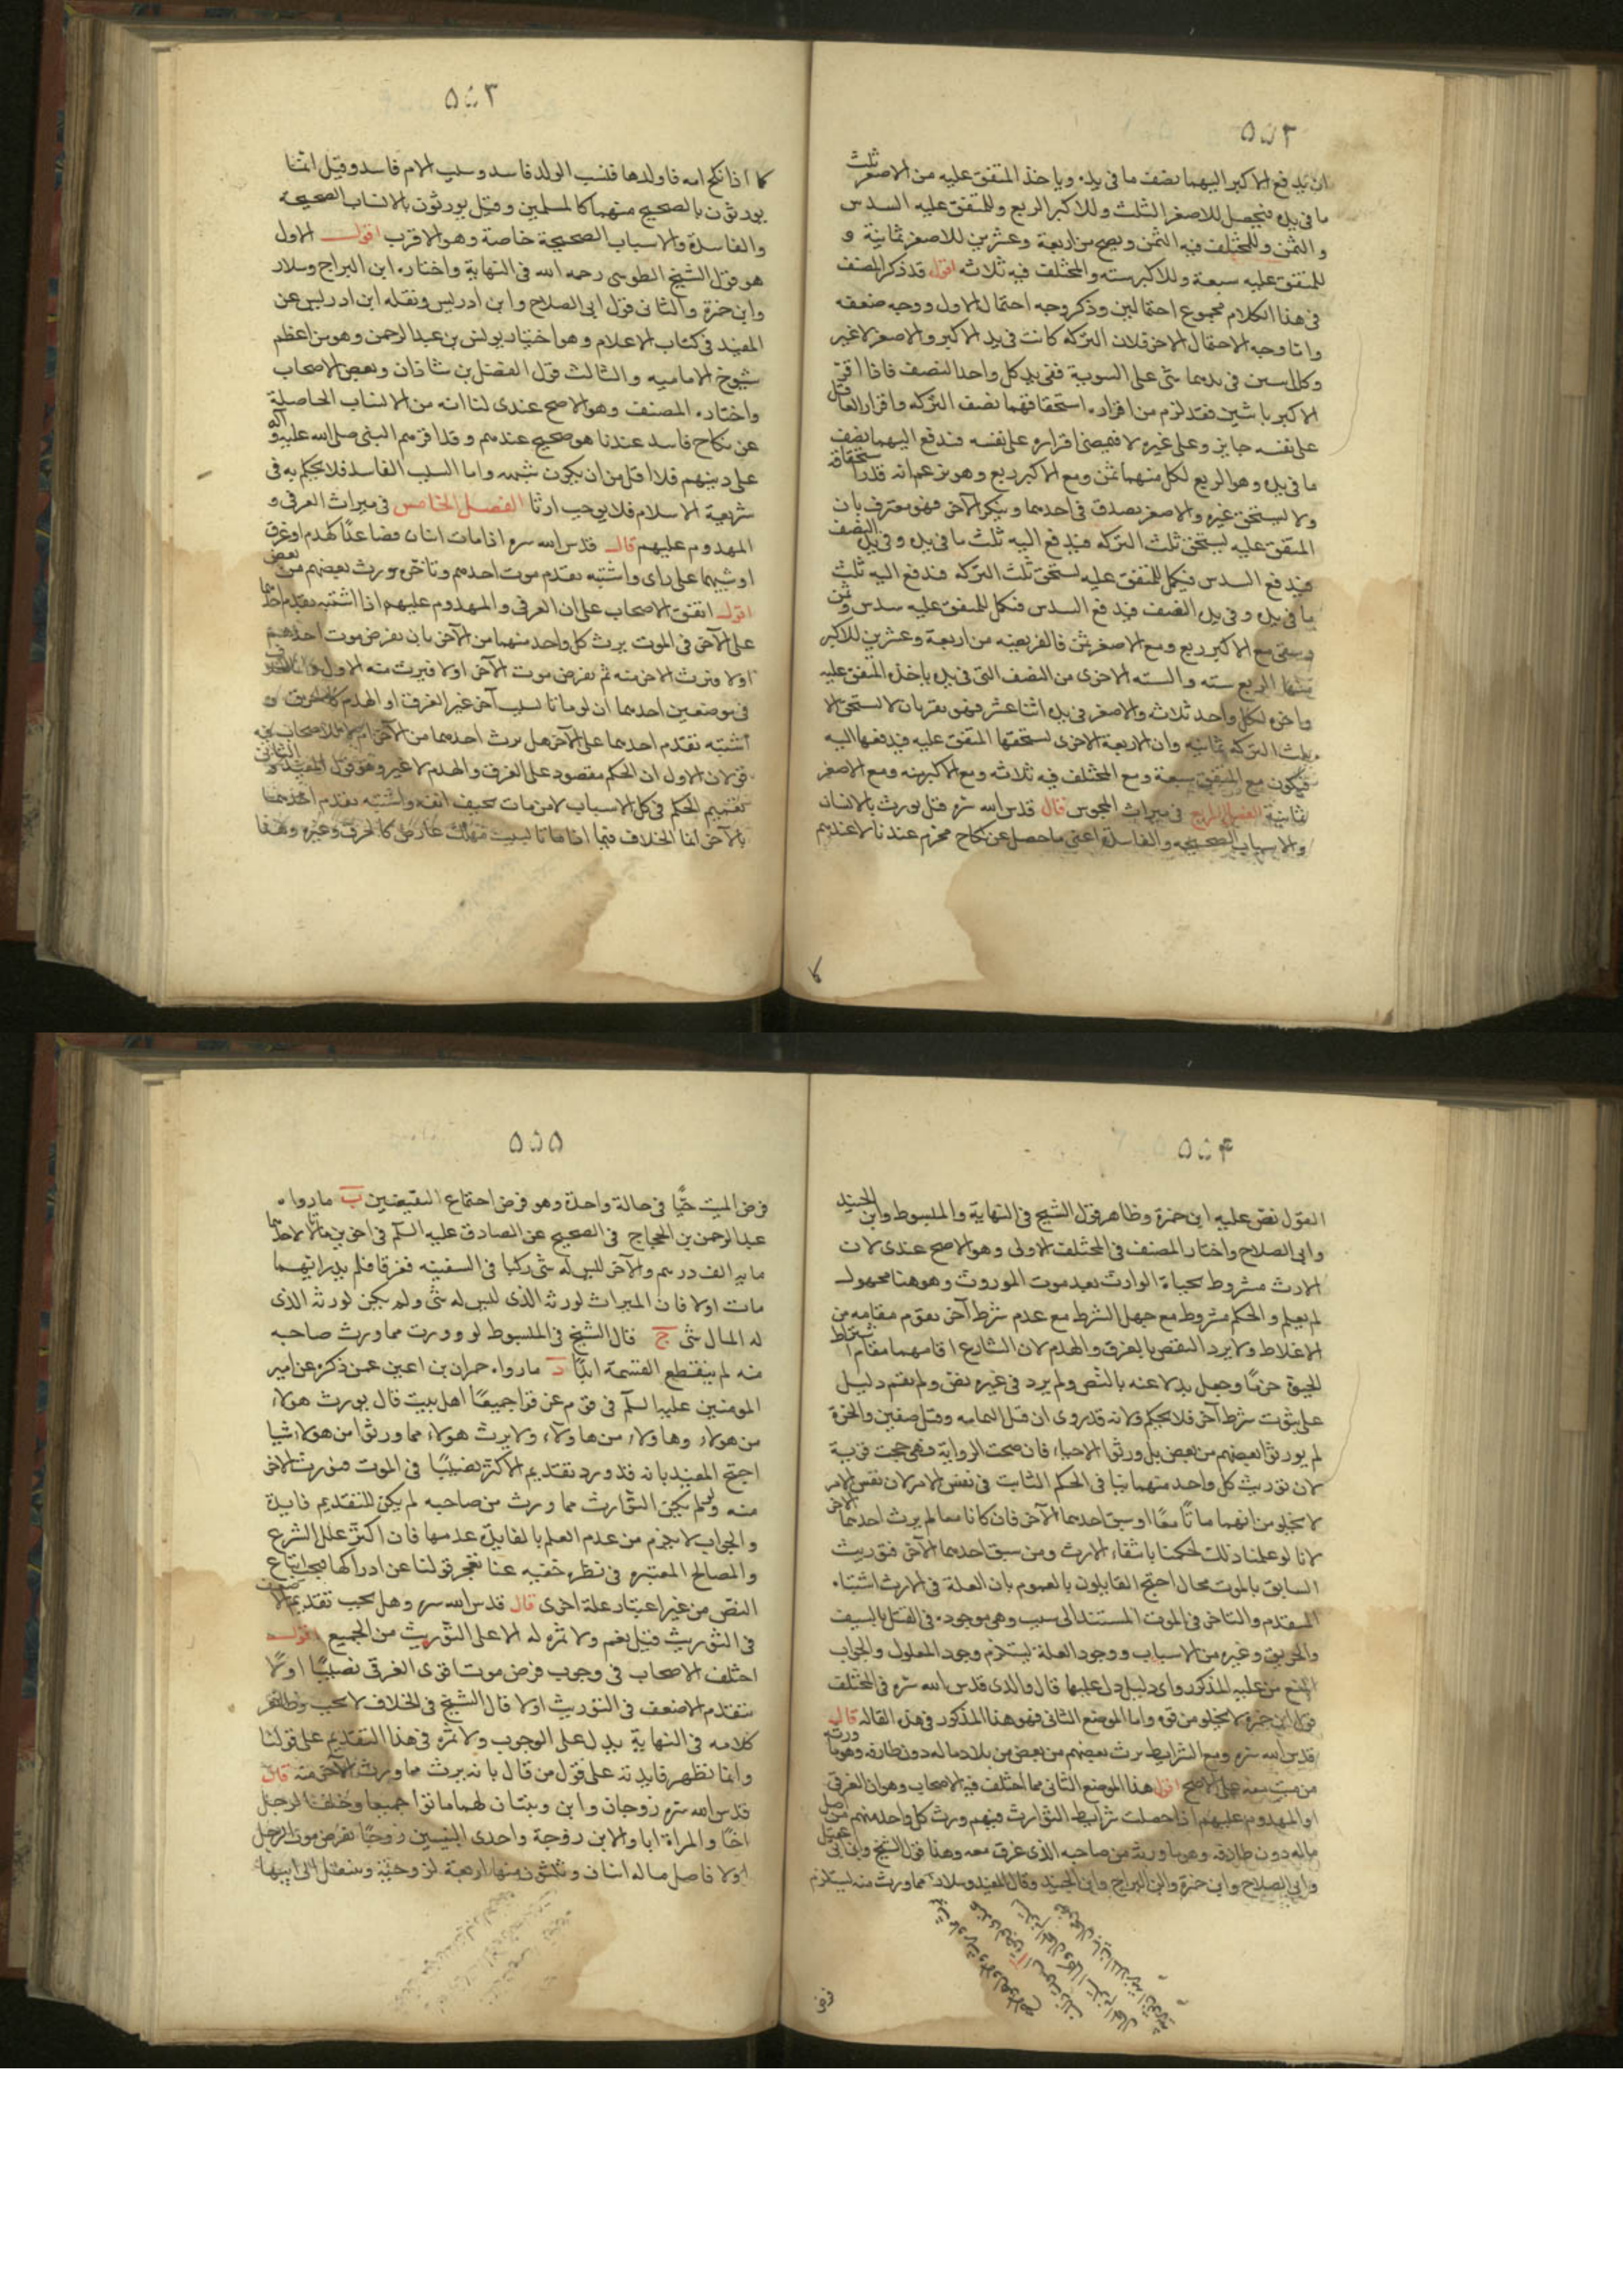 ٥٥٢
ان يدفع الاكبر اليهما نصف ما فى يده وياخذ المتفق عليه من الاصغر ثلث
ما فى يده فيحصل للاصغر الثلث وللاكبر الربع وللمتفق عليه السدس
و الثمن وللمختلف فيه الثمن ويصح من اربعة وعشرين للاصغر ثمانية و
للمتفق عليه سبعة وللاكبر سته وللمختلف فيه ثلاثه اقول قد ذكر المصنف
فى هذا الكلام مجموع احتمالين وذكر وجه احتمال الاول ووجه ضعفه
واما وجه الاحتمال الاخر فلان التركه كانت فى يد الاكبر والاصغر لا غير
وكل اسين فى يدهما شى على السوية ففى يد كل واحد النصف فاذا اقر
الاكبر باثنين فقد لزم من اقراره استحقاقهما نصف التركه واقرار العاقل
على نفسه جايز وعلى غيره لا فيمضى اقراره على نفسه فيدفع اليهما نصف
ما فى يده وهو الربع لكل منهما ثمن ومع الاكبر ربع وهو يزعم انه قدر استحقاقه
ولا يستحق غيره والاصغر يصدق فى احدهما وينكر الآخر فهو معترف بان
المتفق عليه يستحق ثلث التركه فيدفع اليه ثلث ما فى يده وفى يده النصف
فيدفع السدس فيكمل للمتفق عليه يستحق ثلث التركه فيدفع اليه ثلث
ما فى يده وفى يده النصف فيدفع السدس فيكمل للمتفق عليه سدس وثمن
ويبقى مع الاكبر ربع ومع الاصغر ثلث فالفريضه من اربعة وعشرين للاكبر
منها الربع سته والسته الاخرى من النصف التى فى يده ياخذ المتفق عليه
واخوه لكل واحد ثلاثه والاصغر فى يده اثنا عشر فهو يقر بان لا يستحق الا
ثلث التركه ثمانيه وان الاربعة الاخرى يستحقها المتفق عليه فيدفعها اليه
فيكون مع المتفق سبعة ومع المختلف فيه ثلاثه ومع الاكبر سته ومع الاصغر
ثمانية الفصل الرابع فى ميراث المجوس قال قدس الله سره قيل يورث بالانساب
والاسباب الصحيحه والفاسدة اعنى ما حصل عن نكاح محرم عندنا لا عندهم
كا
٥٥٣
كا اذا نكح امه فاولدها فنسب الولد فاسد وسبب الام فاسد وقيل انما
يورثون بالصحيح منهما كالمسلمين وقيل يورثون بالانساب الصحيحة
والفاسدة والاسباب الصحيحة خاصة وهو الاقرب اقول الاول
هو قول الشيخ الطوسى رحمه الله فى النهاية واختاره ابن البراج وسلار
وابن حمزة والثانى قول ابى الصلاح وابن ادريس ونقله ابن ادريس عن
المفيد فى كتاب الاعلام وهو اختيار يونس بن عبد الرحمن وهو من اعظم
شيوخ الاماميه والثالث قول الفضل بن شاذان وبعض الاصحاب
واختاره المصنف وهو الاصح عندى لنا انه من الانساب الحاصلة
عن نكاح فاسد عندنا هو صحيح عندهم وقد اقرهم النبى صلى الله عليه وآله
على دينهم فلا اقل من ان يكون شبهه واما السبب الفاسد فلا يحكم به فى
شريعة الاسلام فلا يوجب ارثا الفصل الخامس فى ميراث الغرقى و
المهدوم عليهم قال قدس الله سره اذا مات اثنان فصاعدا بهدم او غرق
او شبهما على راى واشتبه تقدم موت احدهم وتاخره ورث بعضهم من بعض
اقول اتفق الاصحاب على ان الغرقى والمهدوم عليهم اذا اشتبه تقدم احدهما
على الآخر فى الموت يرث كل واحد منهما من الآخر بان يفرض موت احدهم
اولا فيرث الاخر منه ثم يفرض موت الآخر اولا فيرث منه الاول
فى موضعين احدهما ان لو ماتا بسبب آخر غير الغرق او الهدم كالحريق و
اشتبه تقدم احدهما على الآخر هل يرث احدهما من الآخر ام لا للاصحاب فيه
قولان الاول ان الحكم مقصود على الغرق والهدم لا غير وهو قول المفيد والثانى
تعميم الحكم فى كل الاسباب لا من مات حتف انفه واشتبه تقدم احدهما
بالآخر انما الخلاف فيما اذا ماتا بسبب مهلك عارض كالحرق وغيره وهذا
٥٥٤
القول نص عليه ابن حمزة وظاهر قول الشيخ فى النهاية والمبسوط وابن الجنيد
وابى الصلاح واختار المصنف فى المختلف الاولى وهو الاصح عندى لان
الارث مشروط بحياة الوارث بعد موت الموروث وهو هنا مجهول
لم يعلم والحكم مشروط مع جهل الشرط مع عدم شرط آخر يقوم مقامه من
الاغلاط ولا يرد النقص بالغرق والهدم لان الشارع اقامهما مقام اشتراط
للحيوة حزما وجعل بدلا عنه بالنص ولم يرد فى غيره نص ولم يقم دليل
على ثبوت شرط آخر فلا يحكم ولانه قد روى ان قتلى اليمامه وقتلى صفين والحرة
لم يورثوا بعضهم من بعض بل ورثوا الاحياء فان صحت الرواية فهى حجت قوية
لان توريث كل واحد منهما ينافى الحكم الثابت فى نفس الامر لان نفس الامر
لا يخلو من انهما ماتا معا او سبق احدهما الآخر فان كانا معا لم يرث احدهما الاخر
لانا لو علمنا ذلك لحكمنا بانتفاء الارث ومن سبق احدهما الآخر فتوريث
السابق بالموت محال احتج القايلون بالعموم بان العلة فى الارث اشتباه
المتقدم والتاخر فى الموت المستند الى سبب وهى موجودة فى القتل بالسيف
والحريق وغيره من الاسباب ووجود العلة يستلزم وجود المعلول والجواب
المنع من عليه المذكور واى دليل دل عليها قال والدى قدس الله سره فى المختلف
قول ابن حمزة لا يخلو من قوه واما الموضع الثانى فهو هذا المذكور فى هذه القاله قال
قدس الله سره ومع الشرايط يرث بعضهم من بعض من بلاد ماله دون طارفه وهو ما ورثه
من ميت معه على الاصح اقول هذا الموضع الثانى مما اختلف فيه الاصحاب وهو ان الغرقى
او المهدوم عليهم اذا حصلت شرايط التوارث فيهم ورث كل واحد منهم من اصل
ماله دون طارفه وهو ما ورثه من صاحبه الذى غرق معه وهذا قول الشيخ وابن ابى عقيل
وابى الصلاح وابن حمزة وابن البراج وابن الجنيد وقال المفيد وسلار مما ورث منه يستلزم
فرض
٥٥٥
فرض الميت حيا فى حالة واحدة وهو فرض اجتماع النقيضين ب ما رواه
عبد الرحمن بن الحجاج فى الصحيح عن الصادق عليه السلم فى اخوين ماتا لاحدهما
مايه الف درهم والآخر ليس له شى ركبا فى السفينه فغرقا فلم يدر ايهما
مات اولا فان الميراث لورثه الذى ليس له شى ولم يكن لورثه الذى
له المال شى ج قال الشيخ فى المبسوط لو وورث مما ورث صاحبه
منه لم ينقطع القسمة ابدا د ما رواه حمران بن اعين عمن ذكره عن امير
المومنين عليه السلم فى قوم عن قوا جميعا اهل بيت قال يورث هولاء
من هولاء وهاولاء من هاولاء ولا يرث هولاء مما ورثوا من هولاء شيا
احتج المفيد بانه قد ورد تقديم الاكثر نصيبا فى الموت فيورث الاخر
منه ولو لم يكن التوارث مما ورث من صاحبه لم يكن للتقديم فايدة
والجواب لا يجزم من عدم العلم بالفايدة عدمها فان اكثر علل الشرع
والمصالح المعتبره فى نظره خفيه عنا تعجز قولنا عن ادراكها فيجب اتباع
النص من غير اعتبار علة اخرى قال قدس الله سره وهل يجب تقديم الاضعف
فى التوريث قيل نعم ولا ثمره له الا على التوريث من الجميع اقول
اختلف الاصحاب فى وجوب فرض موت اقوى الغرقى نصيبا اولا
بتقدم الاضعف فى التوريث اولا قال الشيخ فى الخلاف لا يجب وظاهر
كلامه فى النهاية يدل على الوجوب ولا ثمره فى هذا التقديم على قولنا
وانما تظهر فايدته على قول من قال بانه يرث مما ورث الآخر منه قال
قدس الله سره زوجان وابن وبنتان لهما ماتوا جميعا وخلف الرجل
اخا والمراة ابا والابن زوجة واحدى البنتين زوجا يفرض موت الرجل
اولا فاصل ماله اثنان وثلثون منها اربعة لزوجته وينتقل الى ابيها